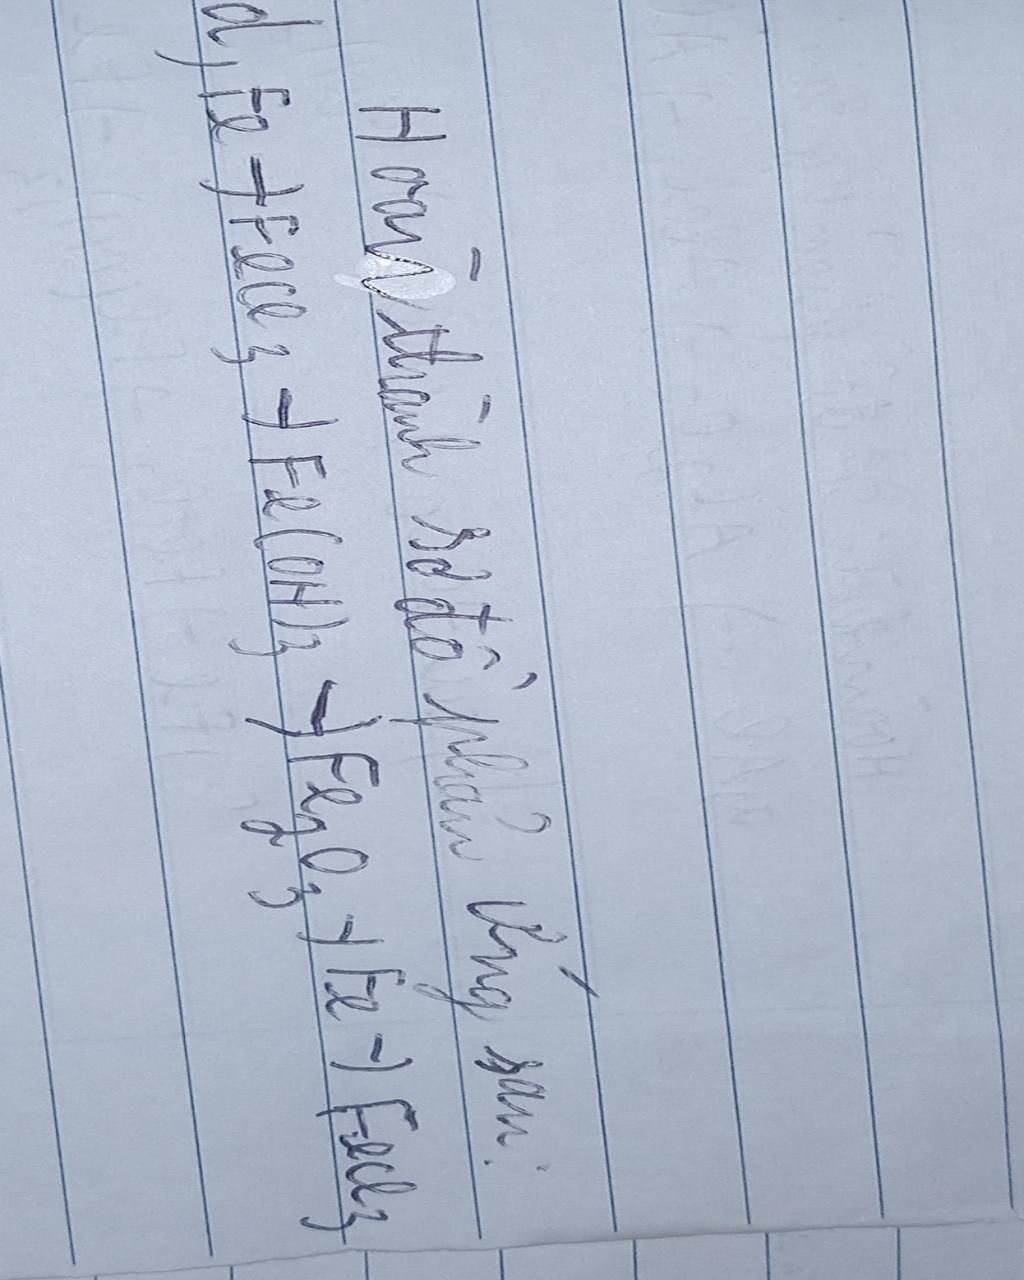 Hoàn thành sơ đồ phản ứng sau:
d, Fe → FeCl3 → Fe(OH)3 → Fe2O3 → Fe → FeCl3